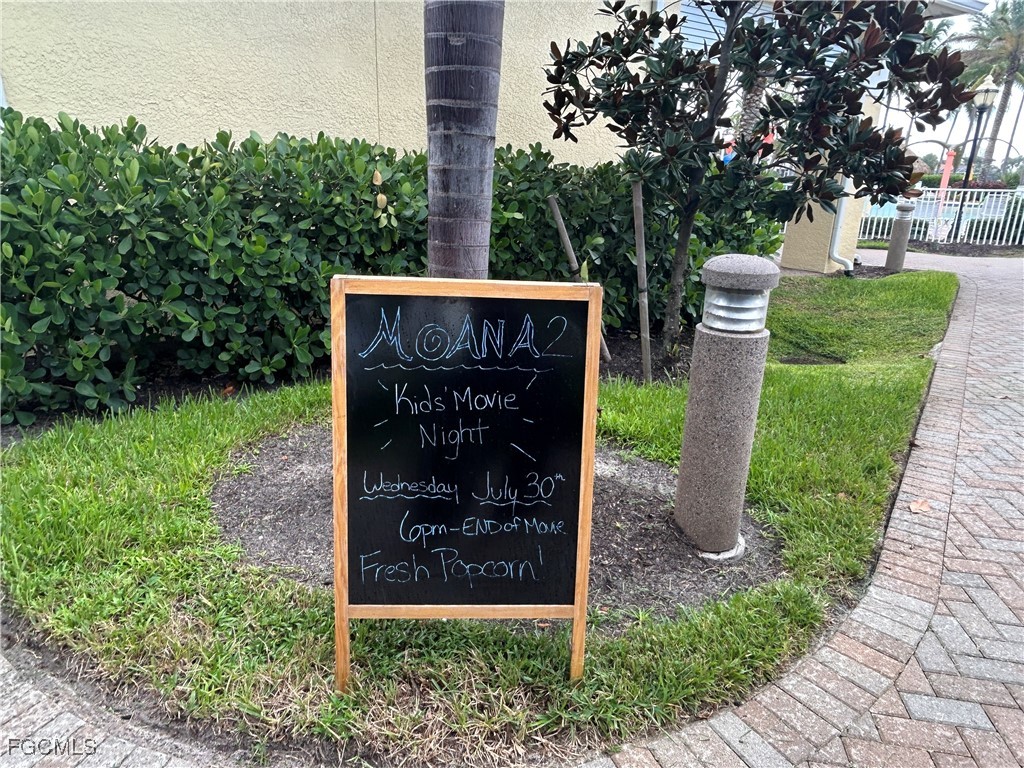 MOANA 2
Kids' Movie
Night
Wednesday July 30th
6pm-END of Movie
Fresh Popcorn!
FGCMLS